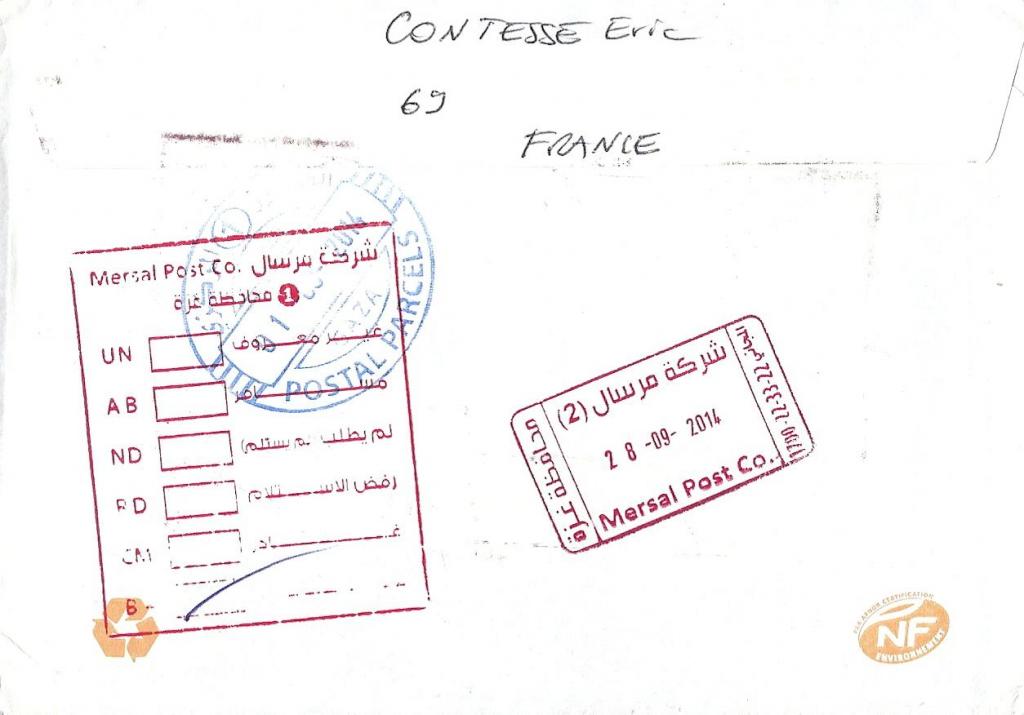 CONTESSE Eric
69
FRANCE
Mersal Post Co. شركة مرسال
1 محافظة غزة
UN غير معروف
AB مسافر
ND لم يطلب (لم يستلم)
RD رفض الاستلام
POSTAL PARCELS
GAZA
2014
شركة مرسال (2)
28-09-2014
Mersal Post Co.
محافظة غزة
1700-22-33-22
PAR AFNOR CERTIFICATION
NF
ENVIRONNEMENT